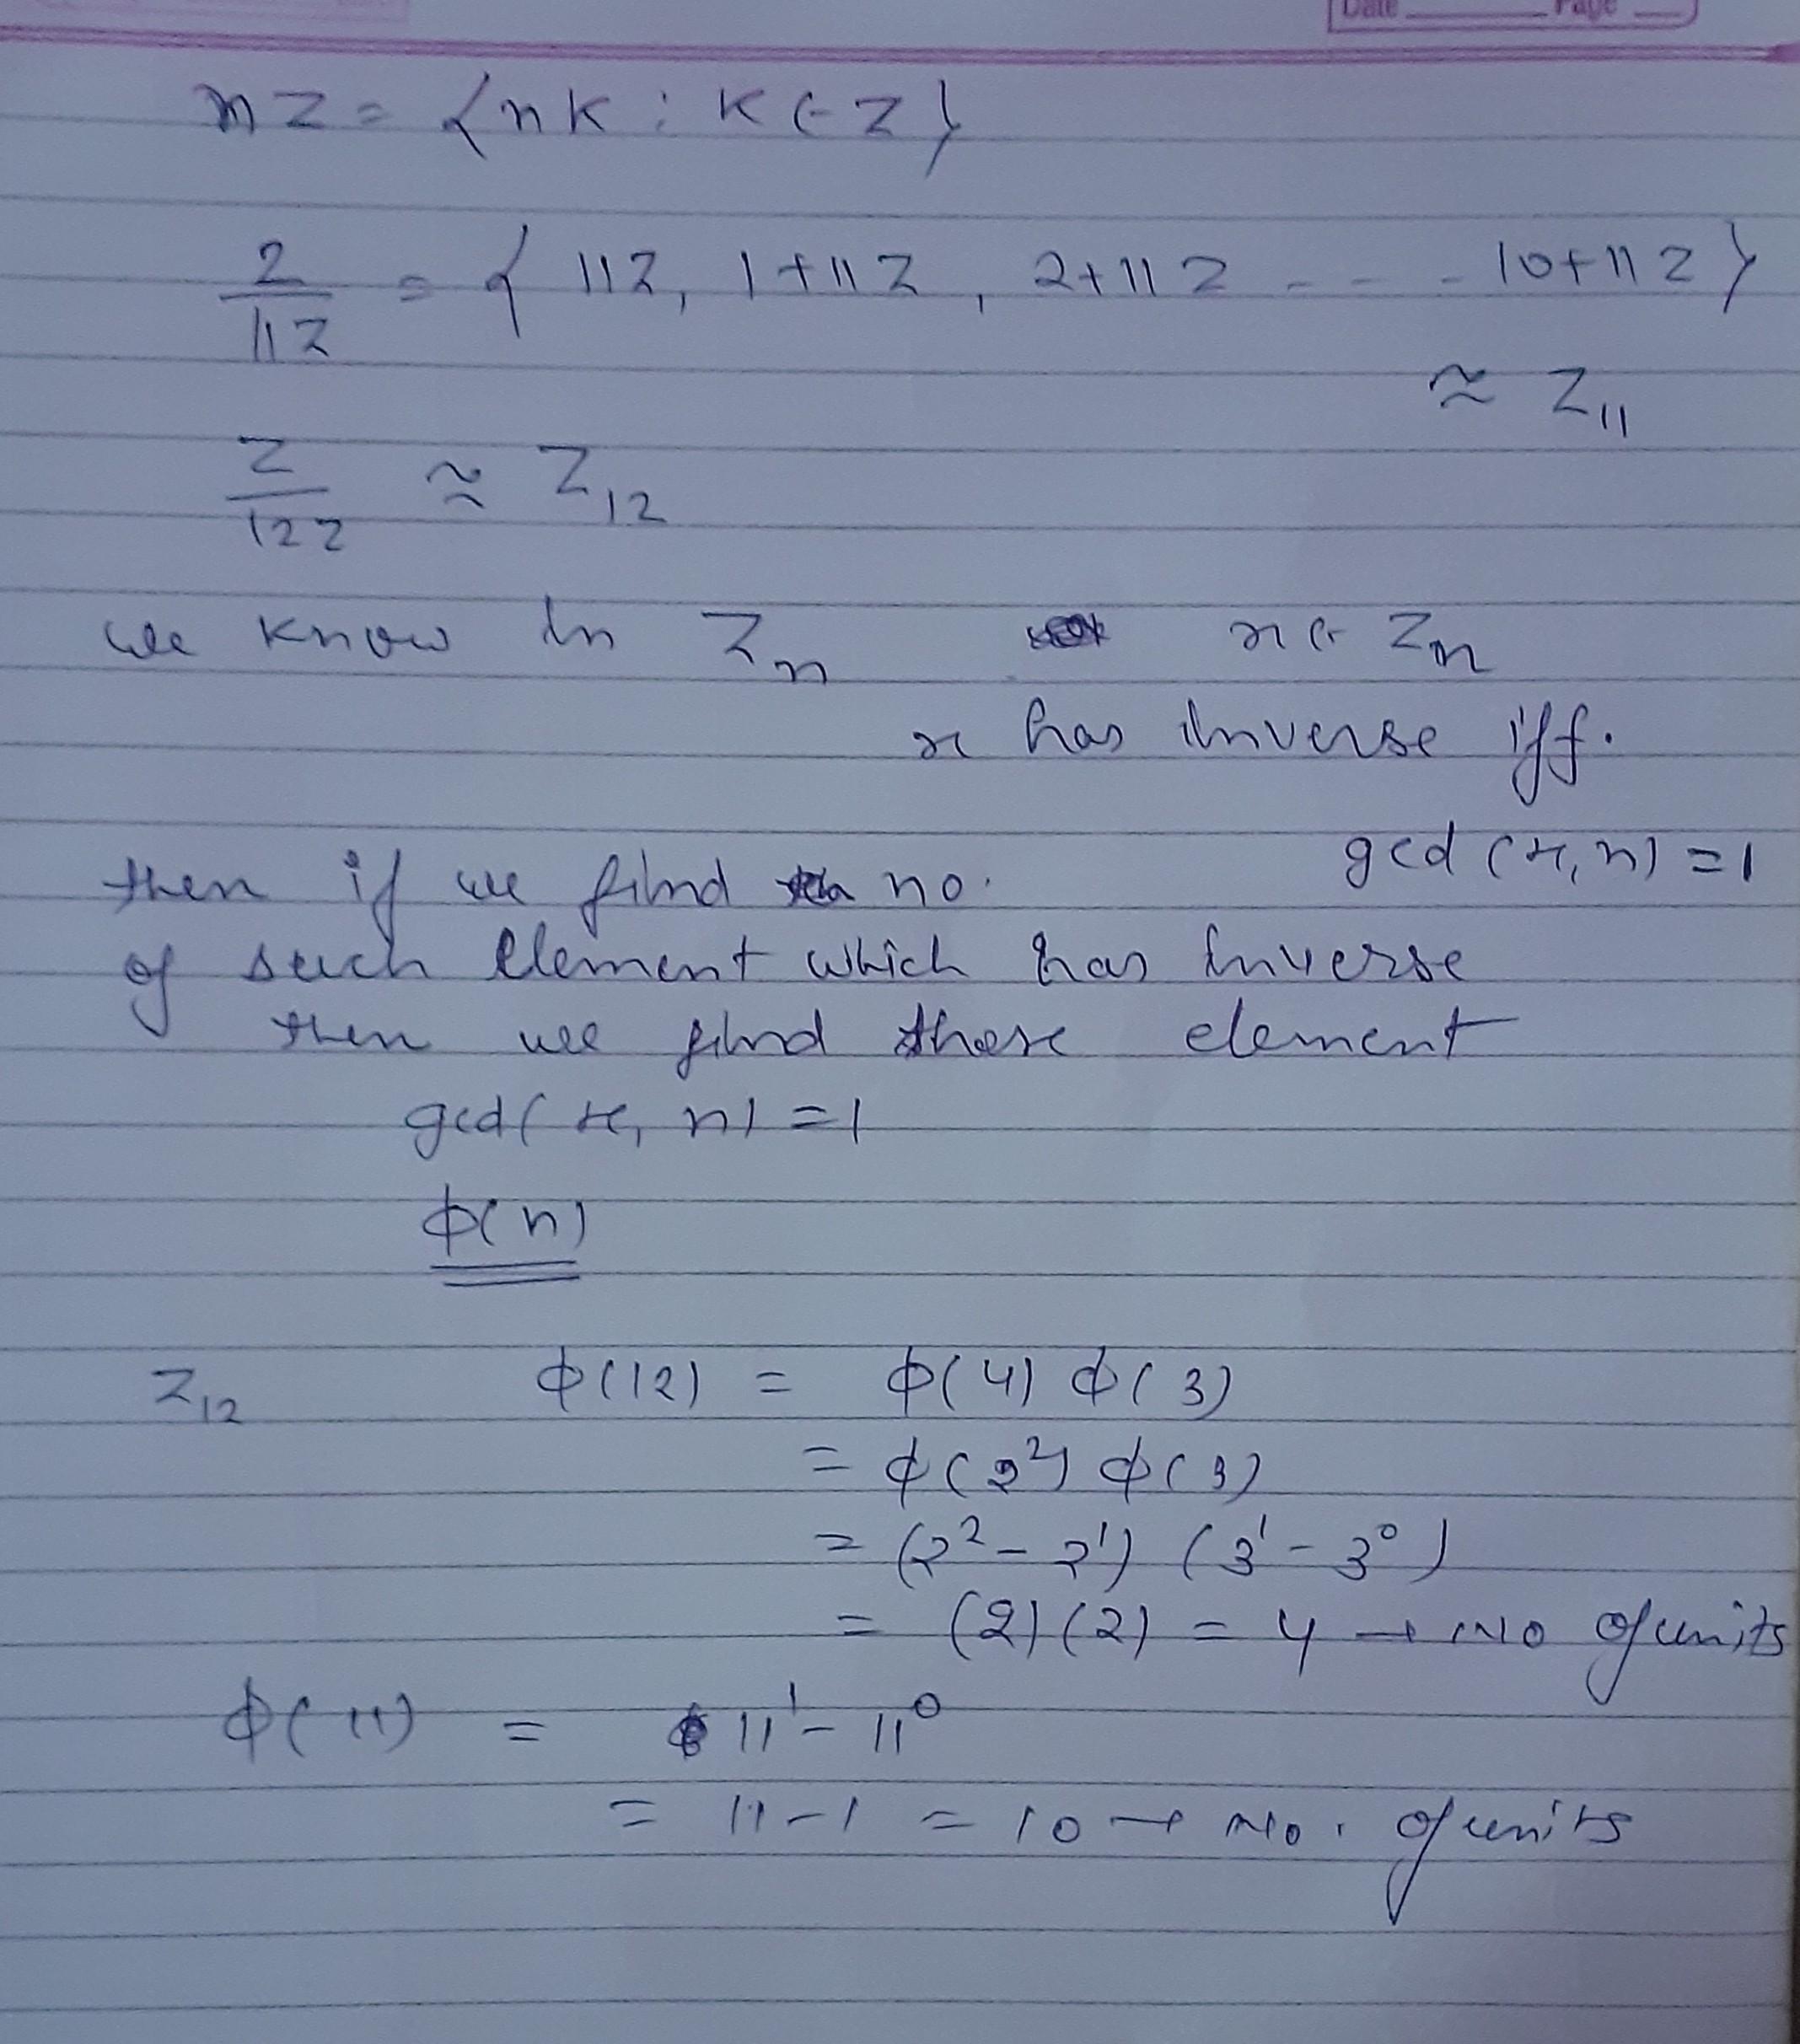 Date Page
nZ = {nk : k ∈ Z}
Z/11Z = { 11Z, 1+11Z, 2+11Z - - - 10+11Z}
≈ Z₁₁
Z/12Z ≈ Z₁₂
we know in Zₙ x ∈ Zₙ
x has inverse iff.
gcd (x, n) = 1
then if we find no.
of such element which has inverse
then we find those element
gcd( x, n) = 1
ϕ(n)
Z₁₂ ϕ(12) = ϕ(4) ϕ(3)
= ϕ(2²) ϕ(3)
= (2² - 2¹) (3¹ - 3⁰)
= (2) (2) = 4 → No of units
ϕ(11) = 11¹ - 11⁰
= 11 - 1 = 10 → No. of units